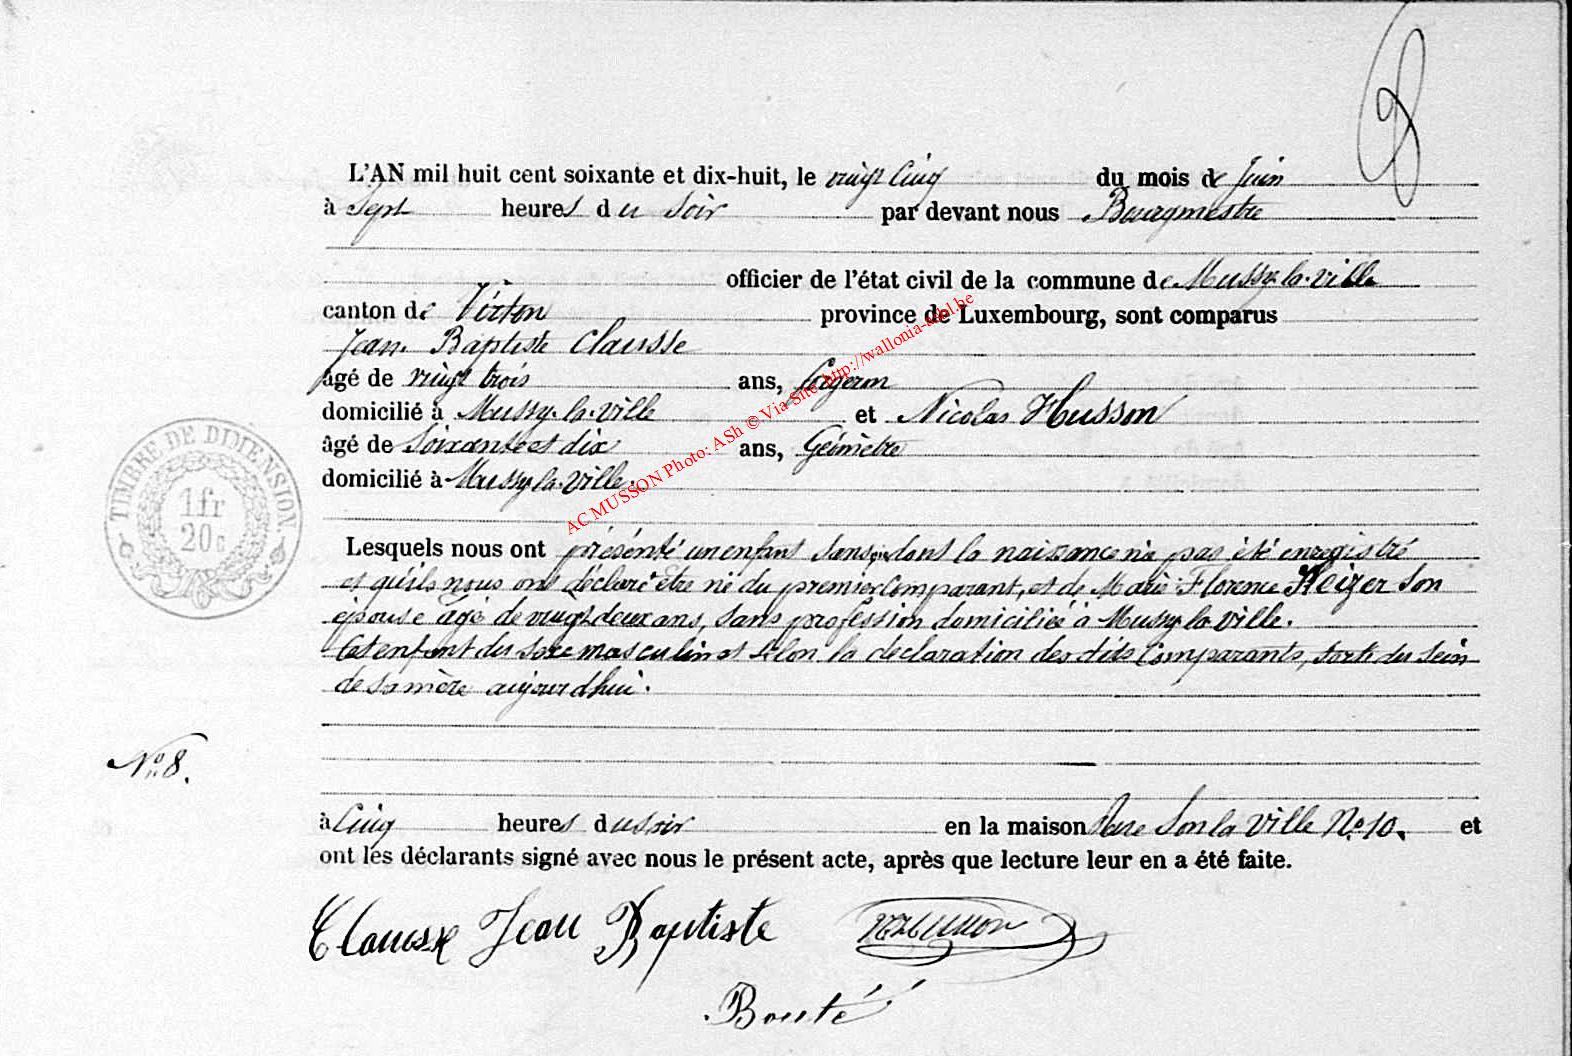 8
L'AN mil huit cent soixante et dix-huit, le vingt Cinq du mois de Juin
à Sept heures du Soir par devant nous Bourgmestre
officier de l'état civil de la commune de Mussy-la-ville
canton de Virton province de Luxembourg, sont comparus
Jean Baptiste Clausse
âgé de vingt trois ans, forgeron
domicilié à Mussy-la-ville et Nicolas Husson
âgé de Soixante et dix ans, Géomètre
domicilié à Mussy-la-ville.
Lesquels nous ont présenté un enfant dont la naissance n'a pas été enregistré
et qu'ils nous ont déclaré être né du premier Comparant, et de Marie Florence son
épouse âgé de vingt deux ans, sans profession domiciliée à Mussy-la-ville.
Cet enfant du sexe masculin est selon la déclaration des dits Comparants, sorti du sein
de sa mère aujourd'hui.
No 8.
à Cinq heures du soir en la maison Rue la ville No 10. et
ont les déclarants signé avec nous le présent acte, après que lecture leur en a été faite.
Clausse Jean Baptiste NHusson
Bouté
TIMBRE DE DIMENSION.
1 fr
20 c
AC MUSSON Photo: ASh © Via Site http://wallonia-asbl.be